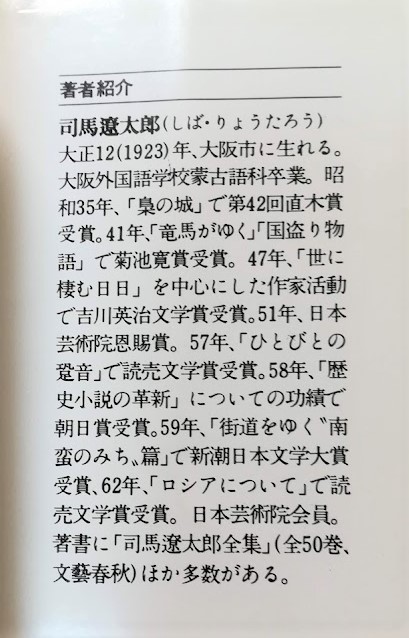 著者紹介
司馬遼太郎(しば・りょうたろう)
大正12(1923)年、大阪市に生れる。
大阪外国語学校蒙古語科卒業。昭
和35年、「梟の城」で第42回直木賞
受賞。41年、「竜馬がゆく」「国盗り物
語」で菊池寛賞受賞。47年、「世に
棲む日日」を中心にした作家活動
で吉川英治文学賞受賞。51年、日本
芸術院恩賜賞。57年、「ひとびとの
跫音」で読売文学賞受賞。58年、「歴
史小説の革新」についての功績で
朝日賞受賞。59年、「街道をゆく〝南
蛮のみち〟篇」で新潮日本文学大賞
受賞、62年、「ロシアについて」で読
売文学賞受賞。日本芸術院会員。
著書に「司馬遼太郎全集」(全50巻、
文藝春秋)ほか多数がある。